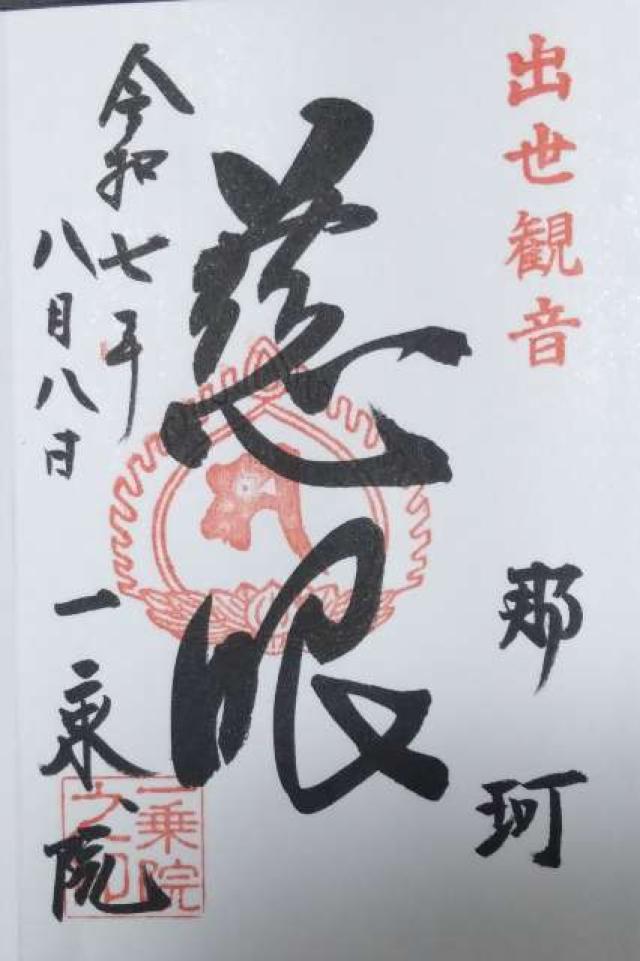 出世観音
那珂
慈眼
令和七年
八月八日
一乗院
一乗院
之印